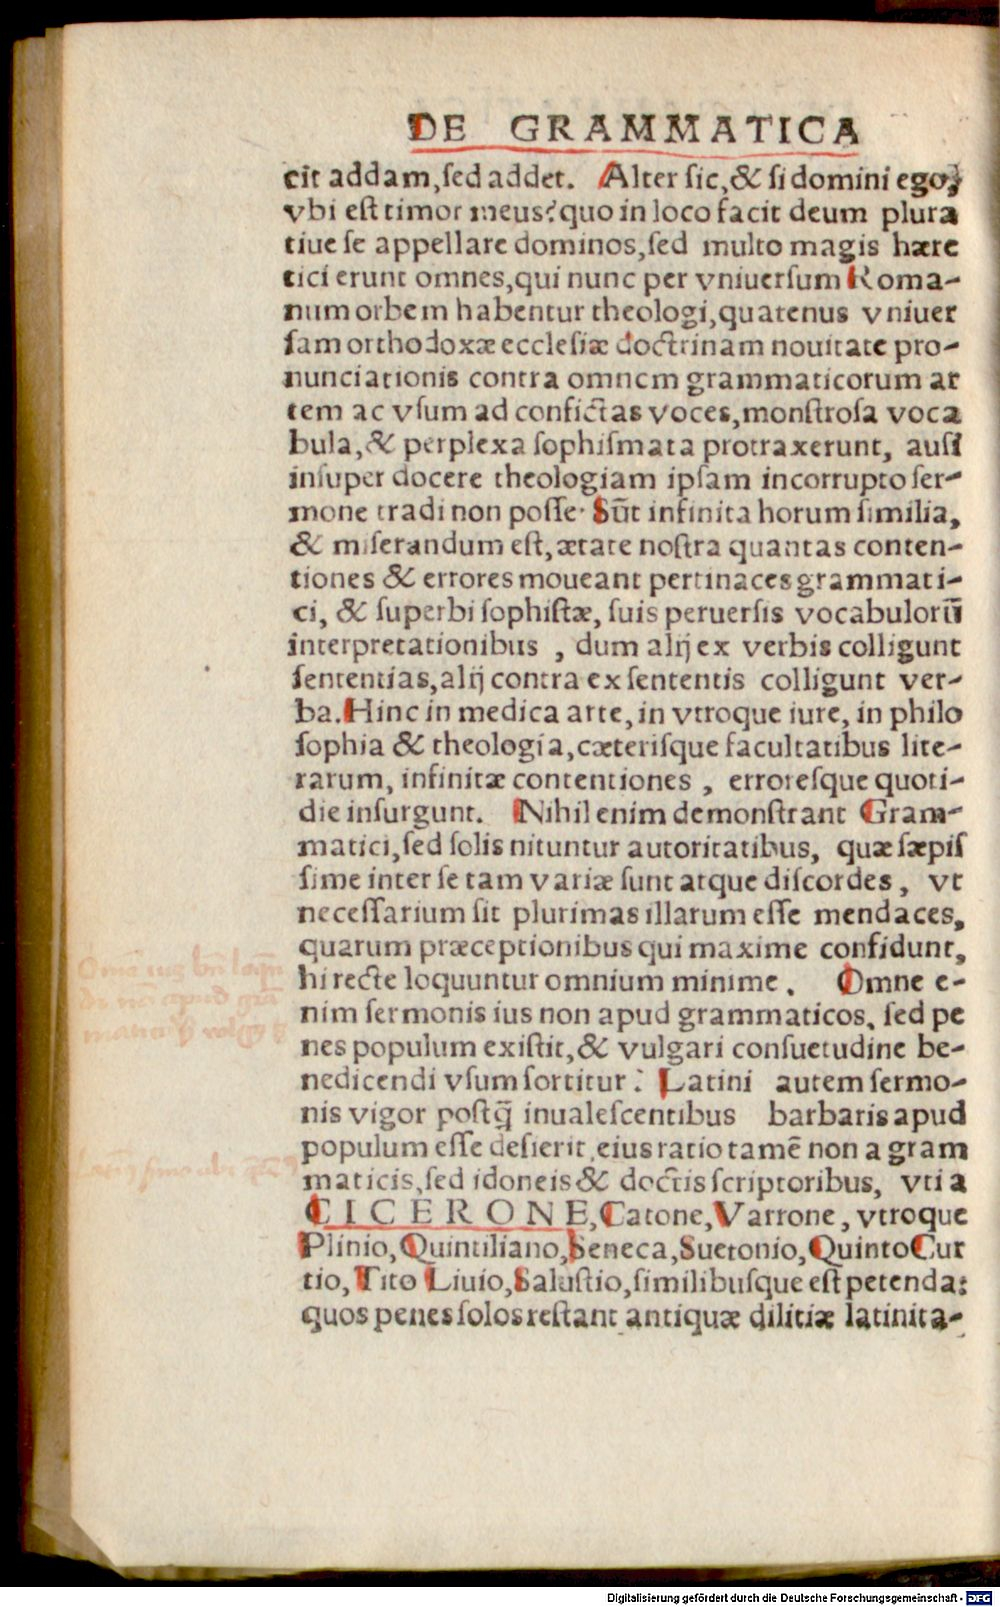 DE GRAMMATICA
cit addam, sed addet. Alter sic, & si domini ego,
vbi est timor meus? quo in loco facit deum plura
tiue se appellare dominos, sed multo magis hære
tici erunt omnes, qui nunc per vniuersum Roma-
num orbem habentur theologi, quatenus vniuer
sam orthodoxæ ecclesiæ doctrinam nouitate pro-
nunciationis contra omnem grammaticorum ar
tem ac vsum ad confictas voces, monstrosa voca
bula, & perplexa sophismata protraxerunt, ausi
insuper docere theologiam ipsam incorrupto ser-
mone tradi non posse. Sūt infinita horum similia,
& miserandum est, ætate nostra quantas conten-
tiones & errores moueant pertinaces grammati-
ci, & superbi sophistæ, suis peruersis vocabulorū
interpretationibus, dum alij ex verbis colligunt
sententias, alij contra ex sententis colligunt ver-
ba. Hinc in medica arte, in vtroque iure, in philo
sophia & theologia, cæterisque facultatibus lite-
rarum, infinitæ contentiones, erroresque quoti-
die insurgunt. Nihil enim demonstrant Gram-
matici, sed solis nituntur autoritatibus, quæ sæpis
sime inter se tam variæ sunt atque discordes, vt
necessarium sit plurimas illarum esse mendaces,
quarum præceptionibus qui maxime confidunt,
hi recte loquuntur omnium minime. Omne e-
nim sermonis ius non apud grammaticos, sed pe
nes populum existit, & vulgari consuetudine be-
nedicendi vsum sortitur: Latini autem sermo-
nis vigor postq̄ inualescentibus barbaris apud
populum esse desierit, eius ratio tamē non a gram
maticis, sed idoneis & doctis scriptoribus, vti a
CICERONE, Catone, Varrone, vtroque
Plinio, Quintiliano, Seneca, Suetonio, Quinto Cur
tio, Tito Liuio, Salustio, similibusque est petenda:
quos penes solos restant antiquæ dilitiæ latinita-
Digitalisierung gefördert durch die Deutsche Forschungsgemeinschaft - DFG